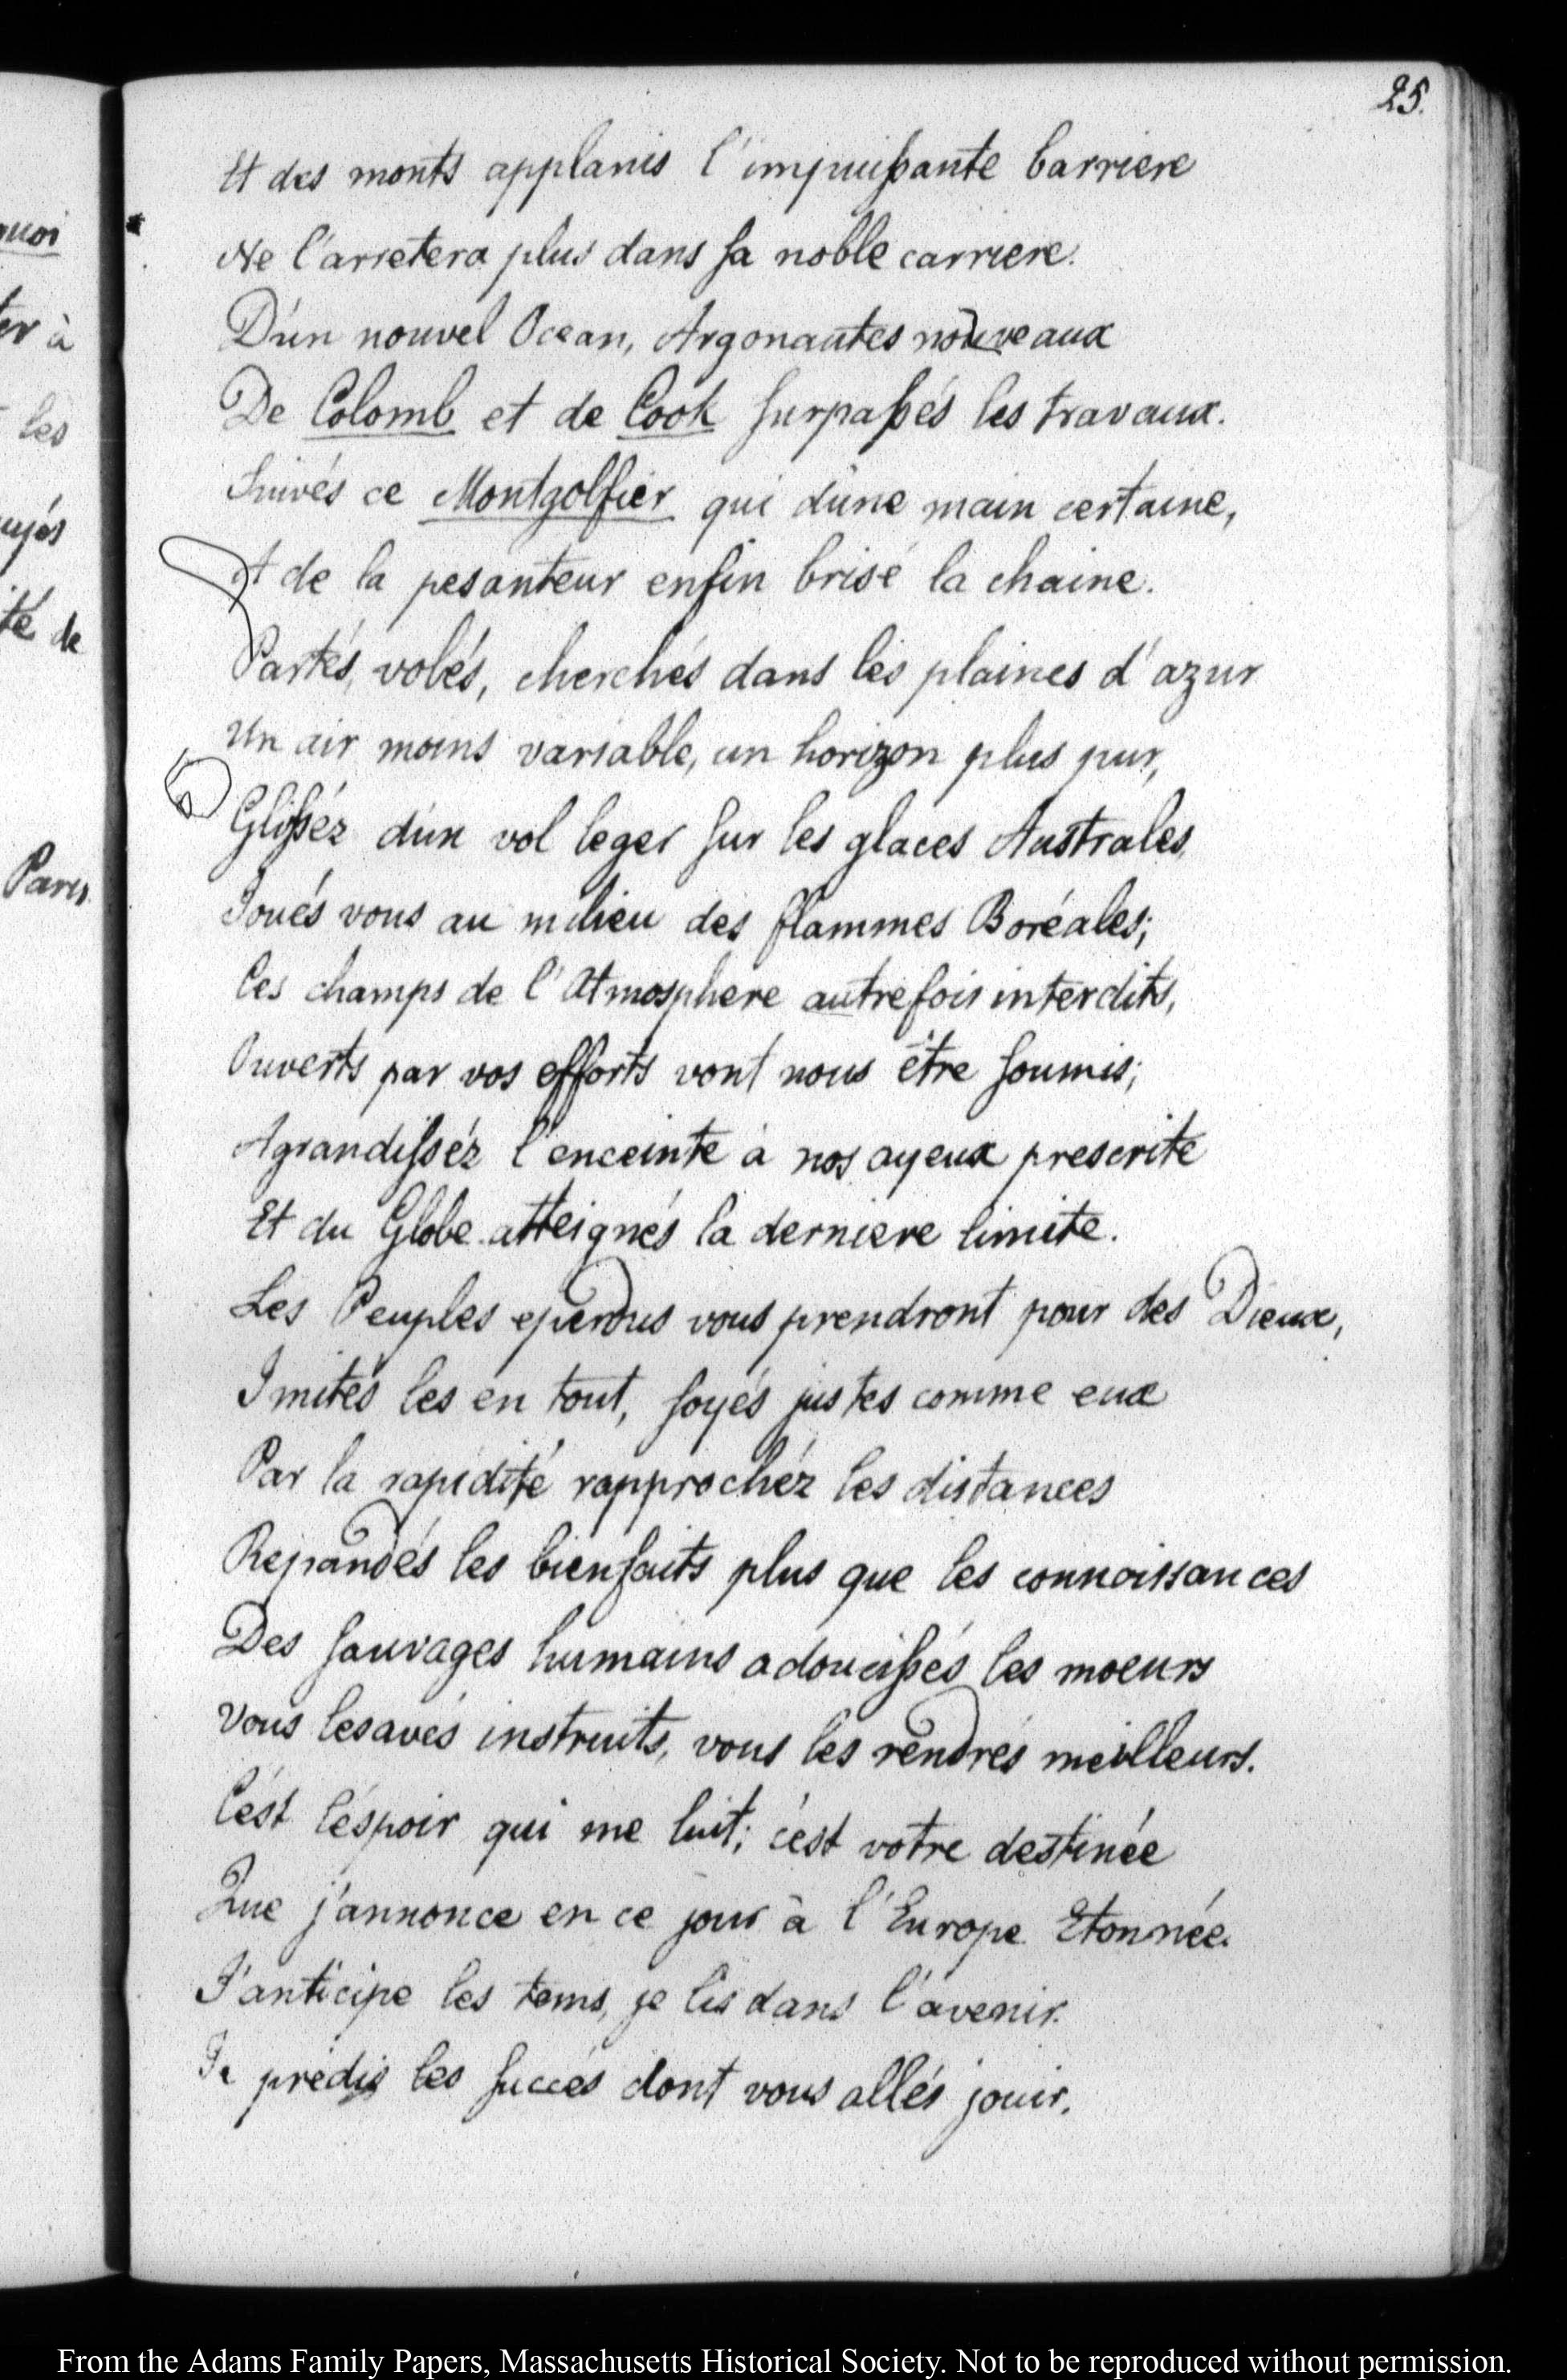 25.
Et des monts applanis l'impuissante barriere
Ne l'arretera plus dans sa noble carriere.
D'un nouvel Ocean, Argonautes nouveaux
De Colomb et de Cook surpassés les travaux.
Suivés ce Montgolfier qui d'une main certaine,
At de la pesanteur enfin brisé la chaine.
Partés, volés, cherchés dans les plaines d'azur
Un air moins variable, un horizon plus pur,
Glissez d'un vol leger sur les glaces Australes,
Joués vous au milieu des flammes Boréales;
Ces champs de l'Atmosphere autrefois interdits,
Ouverts par vos efforts vont nous être soumis;
Agrandissez l'enceinte à nos ayeux prescrite
Et du Globe atteignés la derniere limite.
Les Peuples eperdus vous prendront pour des Dieux,
Imités les en tout, soyés justes comme eux
Par la rapidité rapprochéz les distances
Repandés les bienfaits plus que les connoissances
Des sauvages humains adoucissés les moeurs
Vous les avés instruits, vous les rendrés meilleurs.
C'est l'espoir qui me luit; c'est votre destinée
Que j'annonce en ce jour à l'Europe Etonnée.
J'anticipe les tems, je lis dans l'avenir.
Je prédis les succés dont vous allés jouir.
quoi
ter à
les
té de
Paris
From the Adams Family Papers, Massachusetts Historical Society. Not to be reproduced without permission.